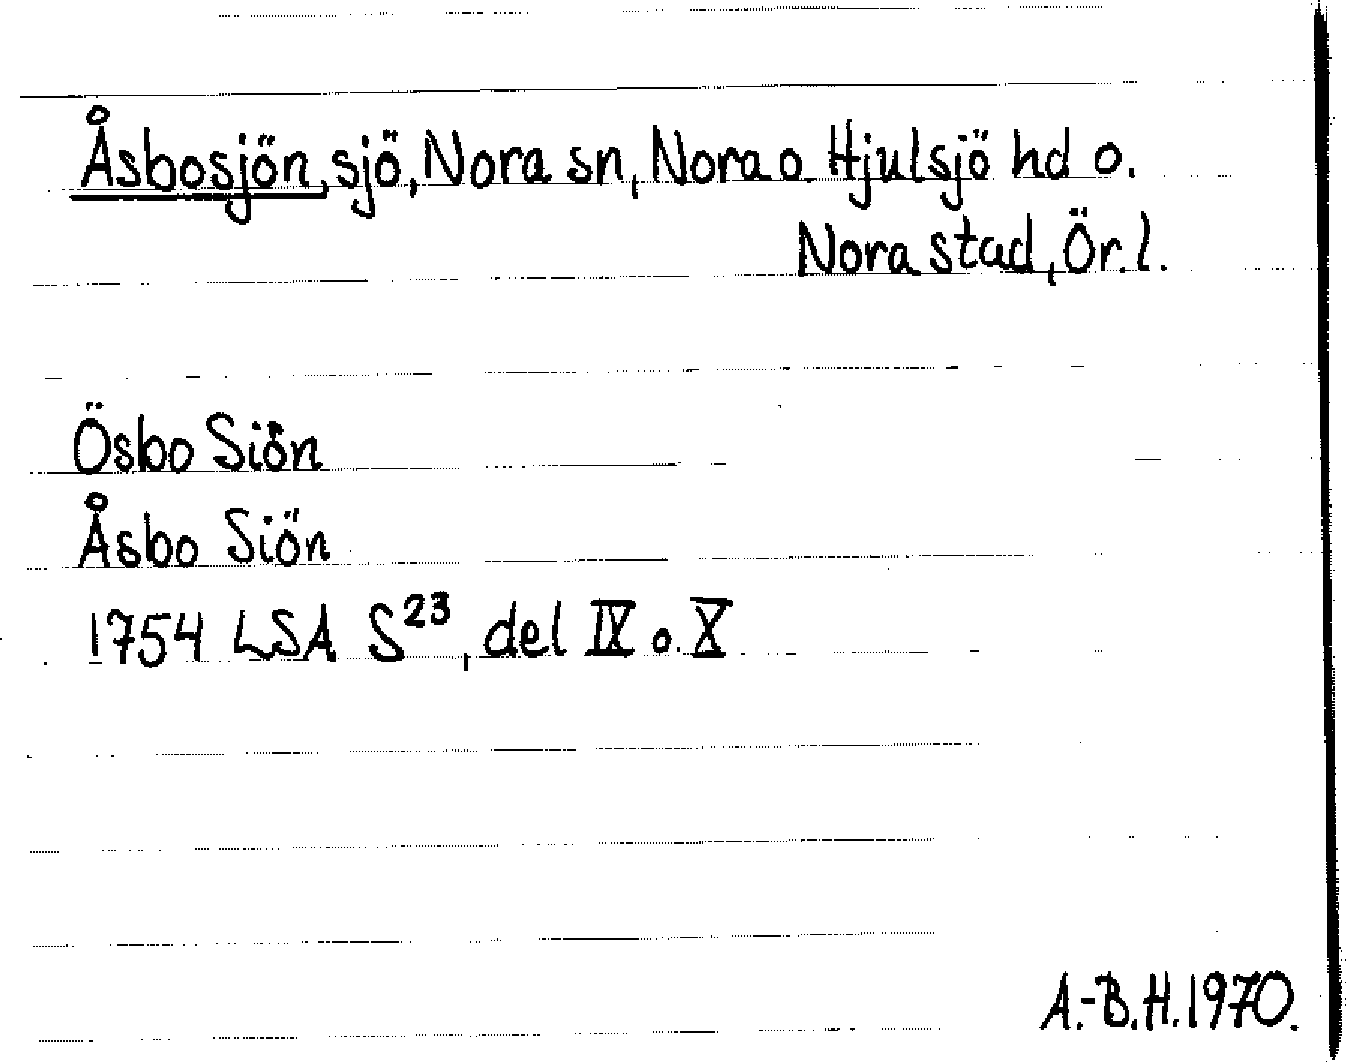 Åsbosjön, sjö, Nora sn, Nora o. Hjulsjö hd o.
Nora stad, Ör. l.
Ösbo Siön
Åsbo Siön
1754 LSA S²³, del IX o. X
A.-B.H. 1970.